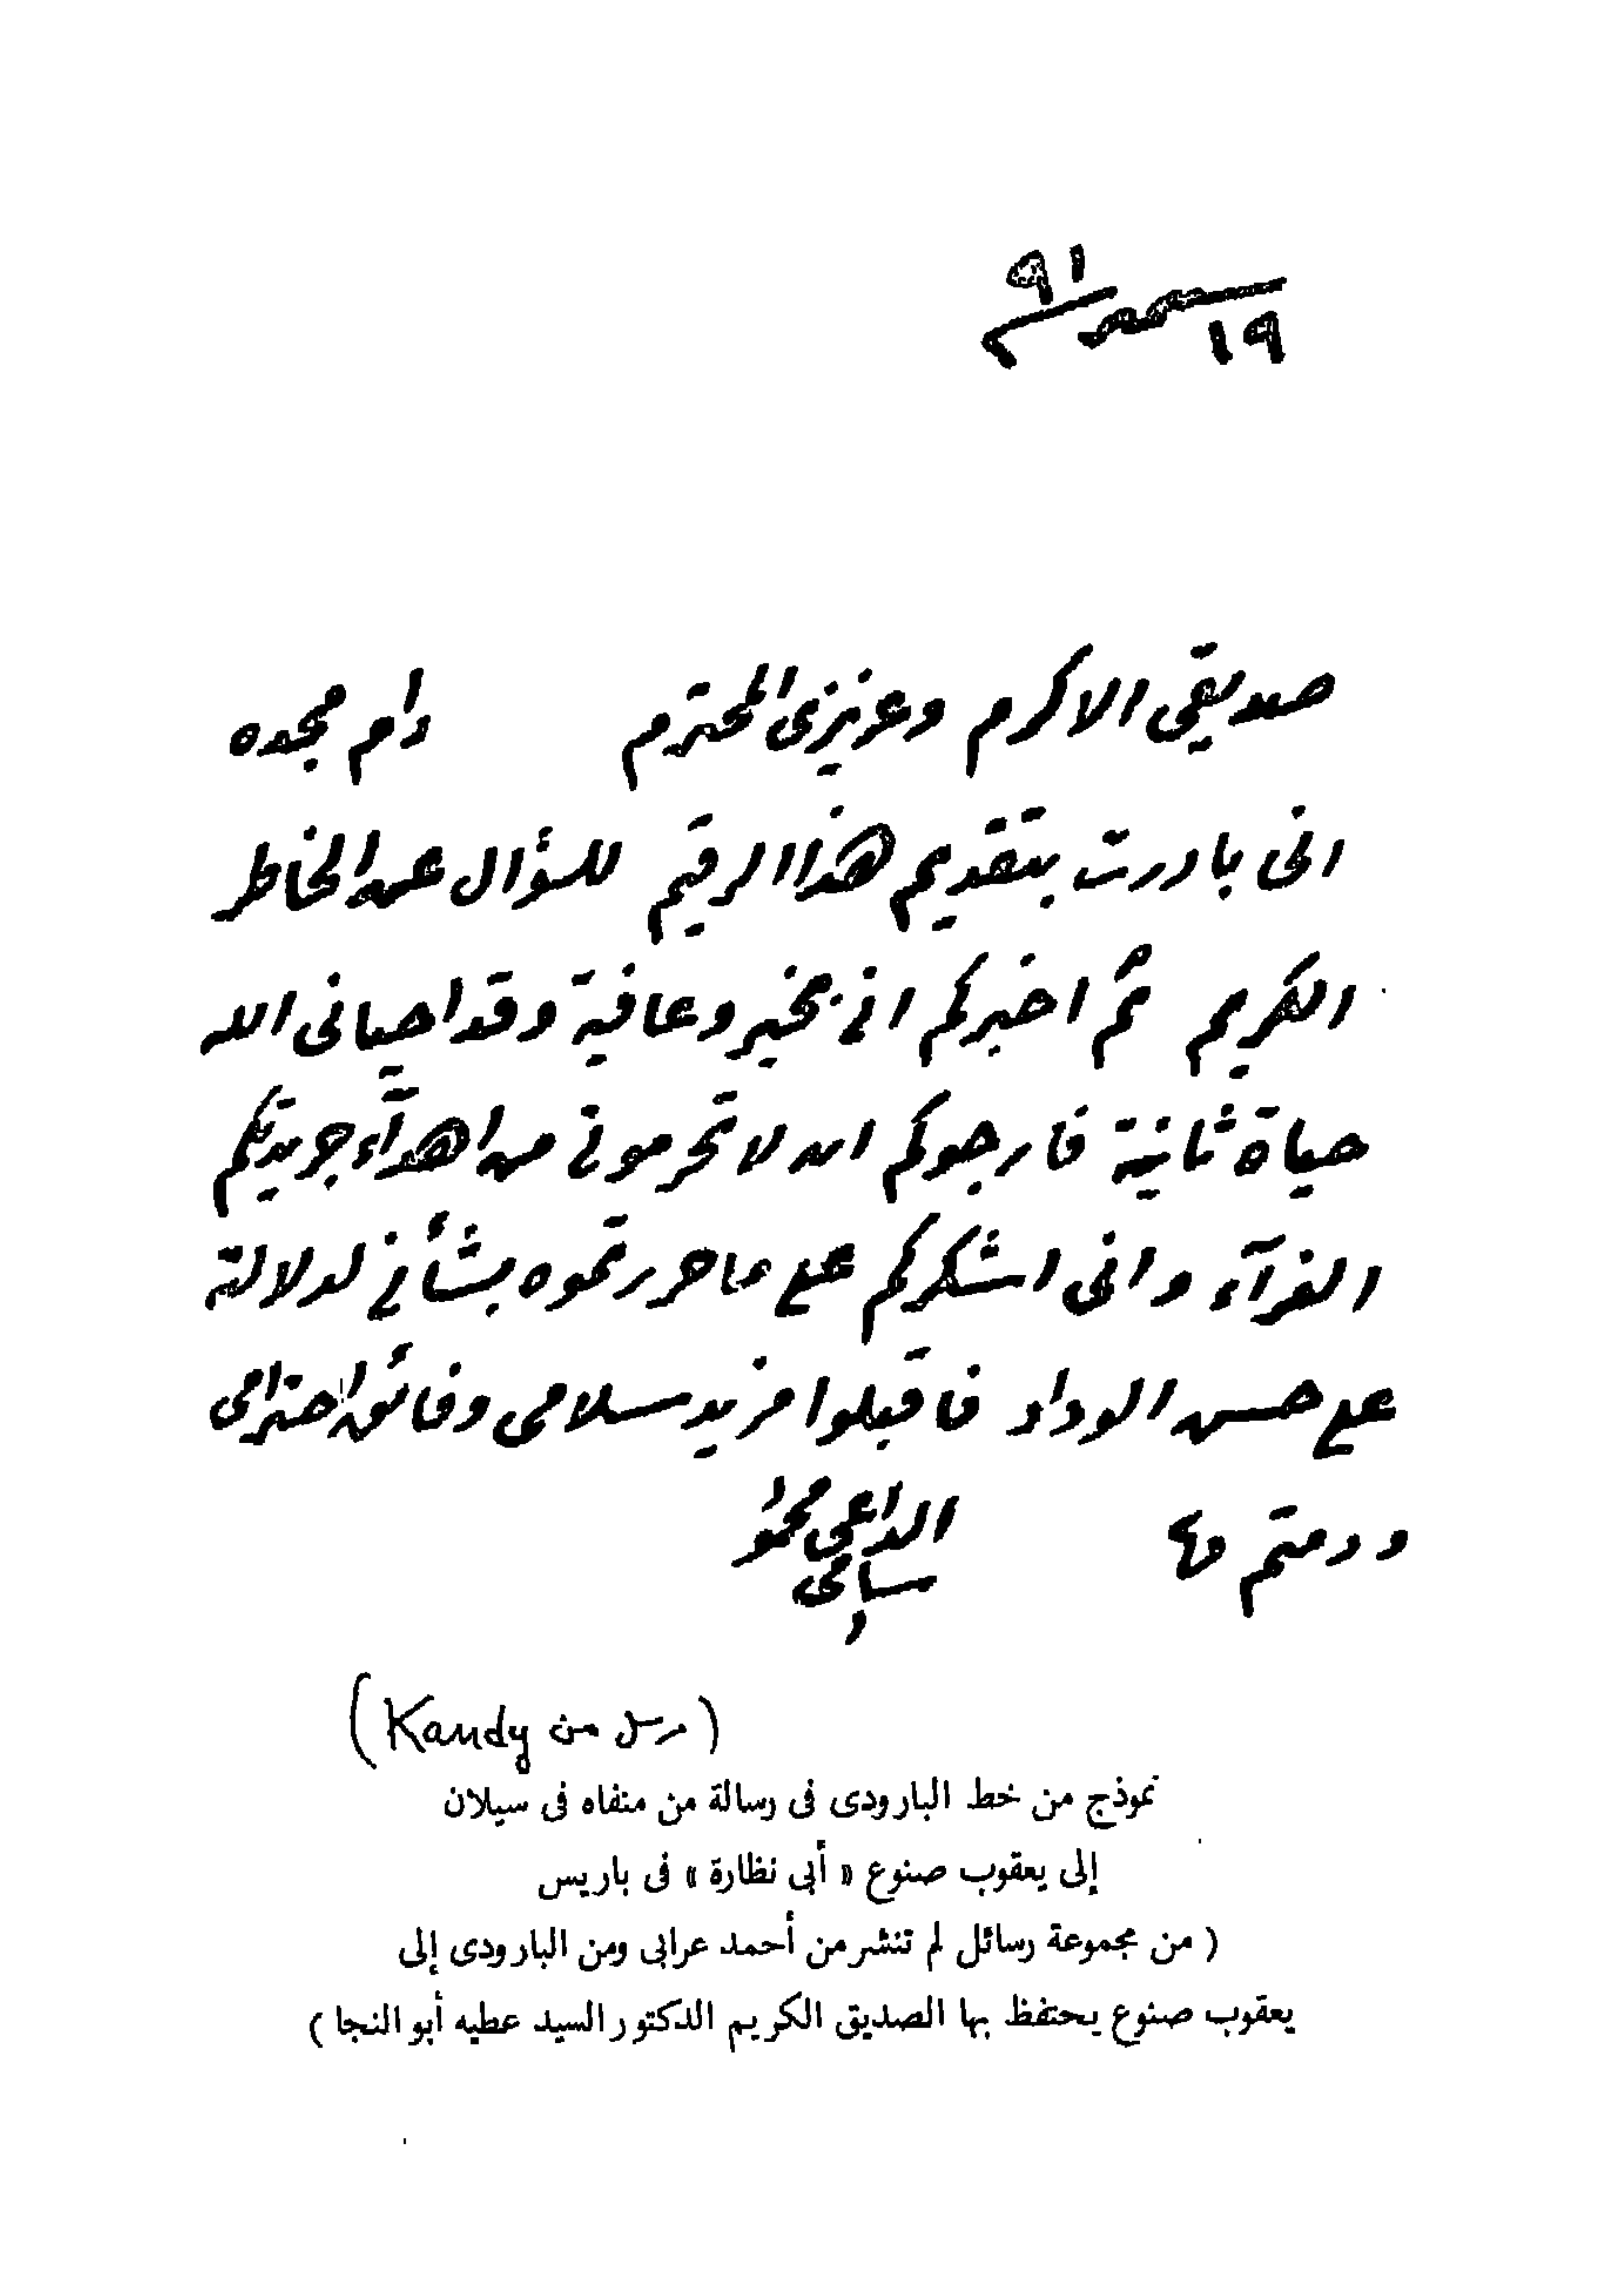 ١٩ سبتمبر ٩١
صديقى الاكرم وعزيزى المحترم دام مجده
انى بادرت بتقديم هذا الرقيم للسؤال عن الخاطر
الكريم ثم اخبركم انى بخير وعافية وقد احيانى الله
حياة ثانية فارجوكم ان لا تحرمونى من اهدآء جريدتكم
الغرآء وانى اشكركم على ما حررتموه بشأنى لدلالته
على حسن الوداد فاقبلوا مزيد سلامى وفائق احترامى
ودمتم
الداعى محمود
سامى
(مرسل من Kandy)
نموذج من خط البارودى فى رسالة من منفاه فى سيلان
إلى يعقوب صنوع « أبى نظارة » فى باريس
( من مجموعة رسائل لم تنشر من أحمد عرابى ومن البارودى إلى
يعقوب صنوع يحتفظ بها الصديق الكريم الدكتور السيد عطيه أبو النجا )